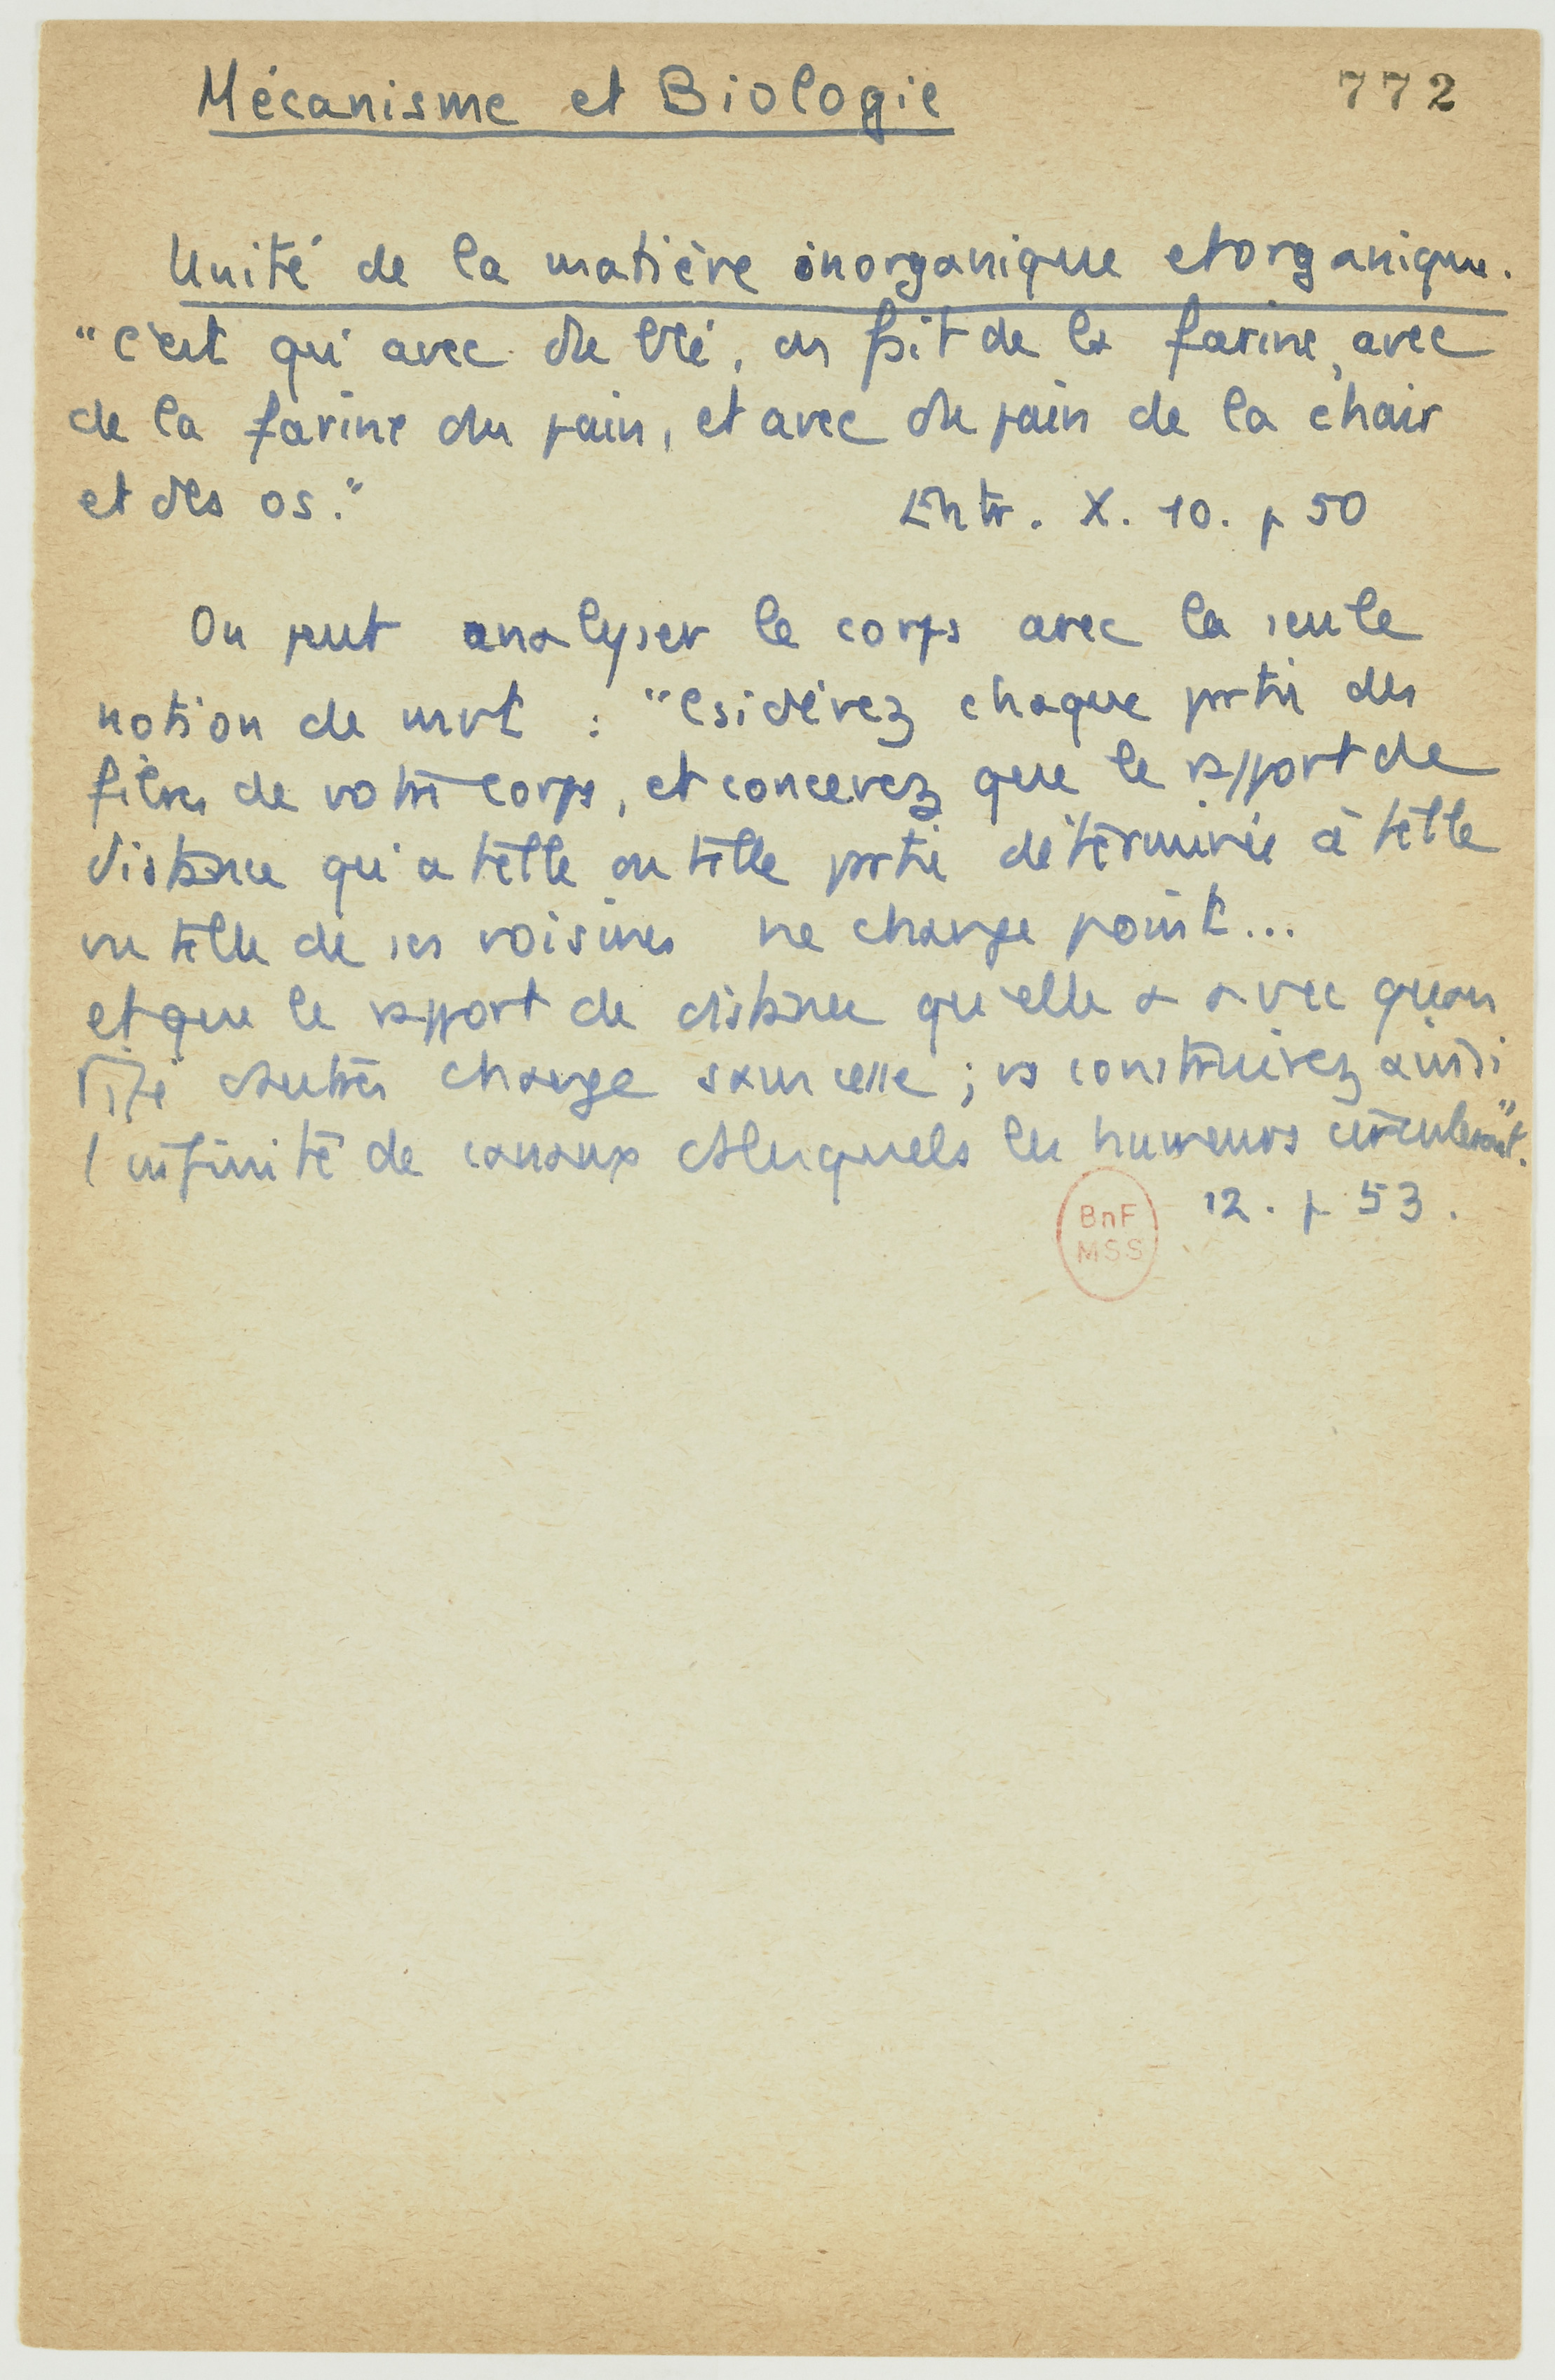 772
Mécanisme et Biologie
Unité de la matière inorganique et organique.
"c'est qu'avec du blé, on fait de la farine, avec
de la farine du pain, et avec du pain de la chair
et des os."
Entr. X. 10. p 50
On peut analyser le corps avec la seule
notion de mvt : "Csidérez chaque partie des
fibres de votre corps, et concevez que le rapport de
distance qu'a telle ou telle partie déterminée à telle
ou telle de ses voisines ne change point...
et que le rapport de distance qu'elle a avec
autres change sans cesse ; vs construirez ainsi
1 infinité de canaux ds lesquels les humeurs circuleront".
12. p 53.
BnF
MSS